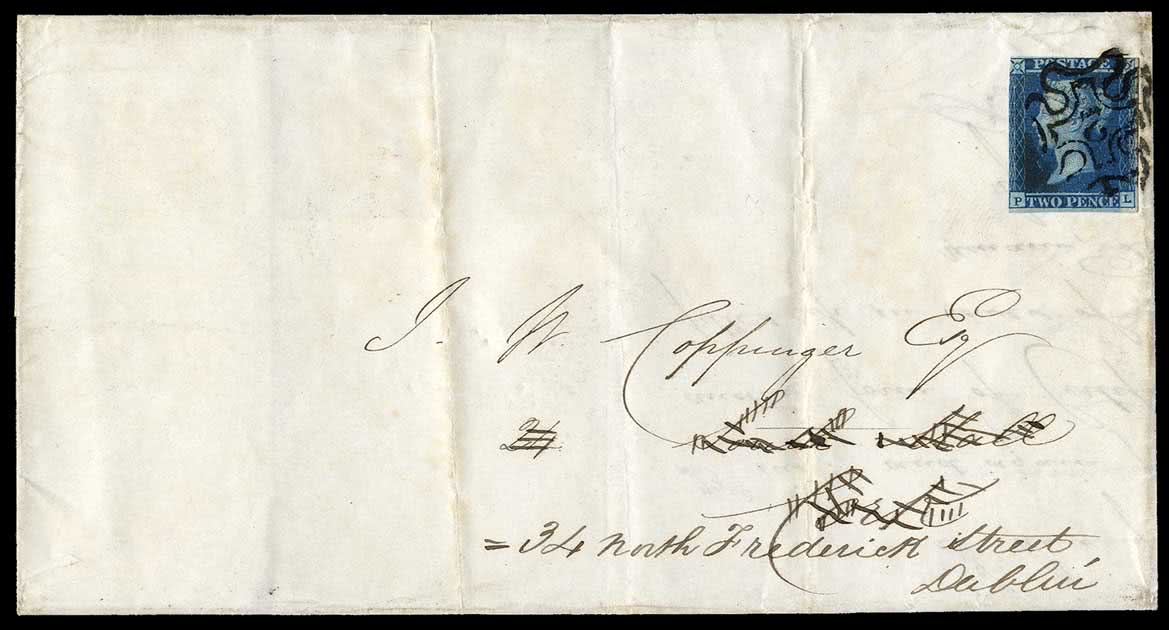 POSTAGE
P TWO PENCE L
J. W. Coppinger Esq
24
= 34 North Frederick Street
Dublin